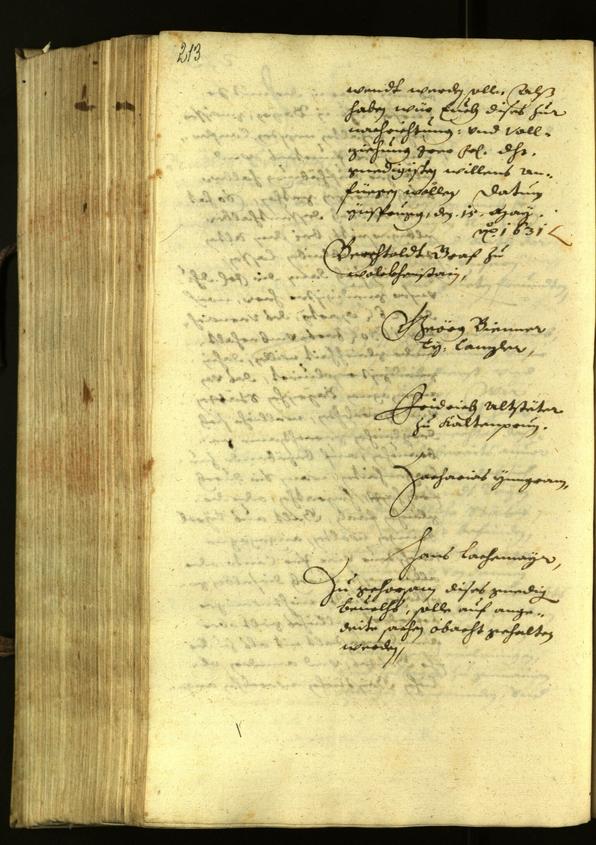 213
wendt werden solle, Alß
haben wür Euch dises zur
nachrichtung: und voll-
ziehung Irer frl. Dht.
gnedigisten willens an-
füegen wollen Datum
Ynsprugg, den 15. May.
1631
Berchtoldt Graf zu
wolckhenstain,
Geörg Bienner
Ty: Canzler,
Fridrich Altstäter
zu Kaltenprun.
Zacharias Ynngram,
Hans Lachemayr,
Zu gehorsam dises gnedig
beuelchs, solle auf ange-
deite sachen obacht gehalten
werden,